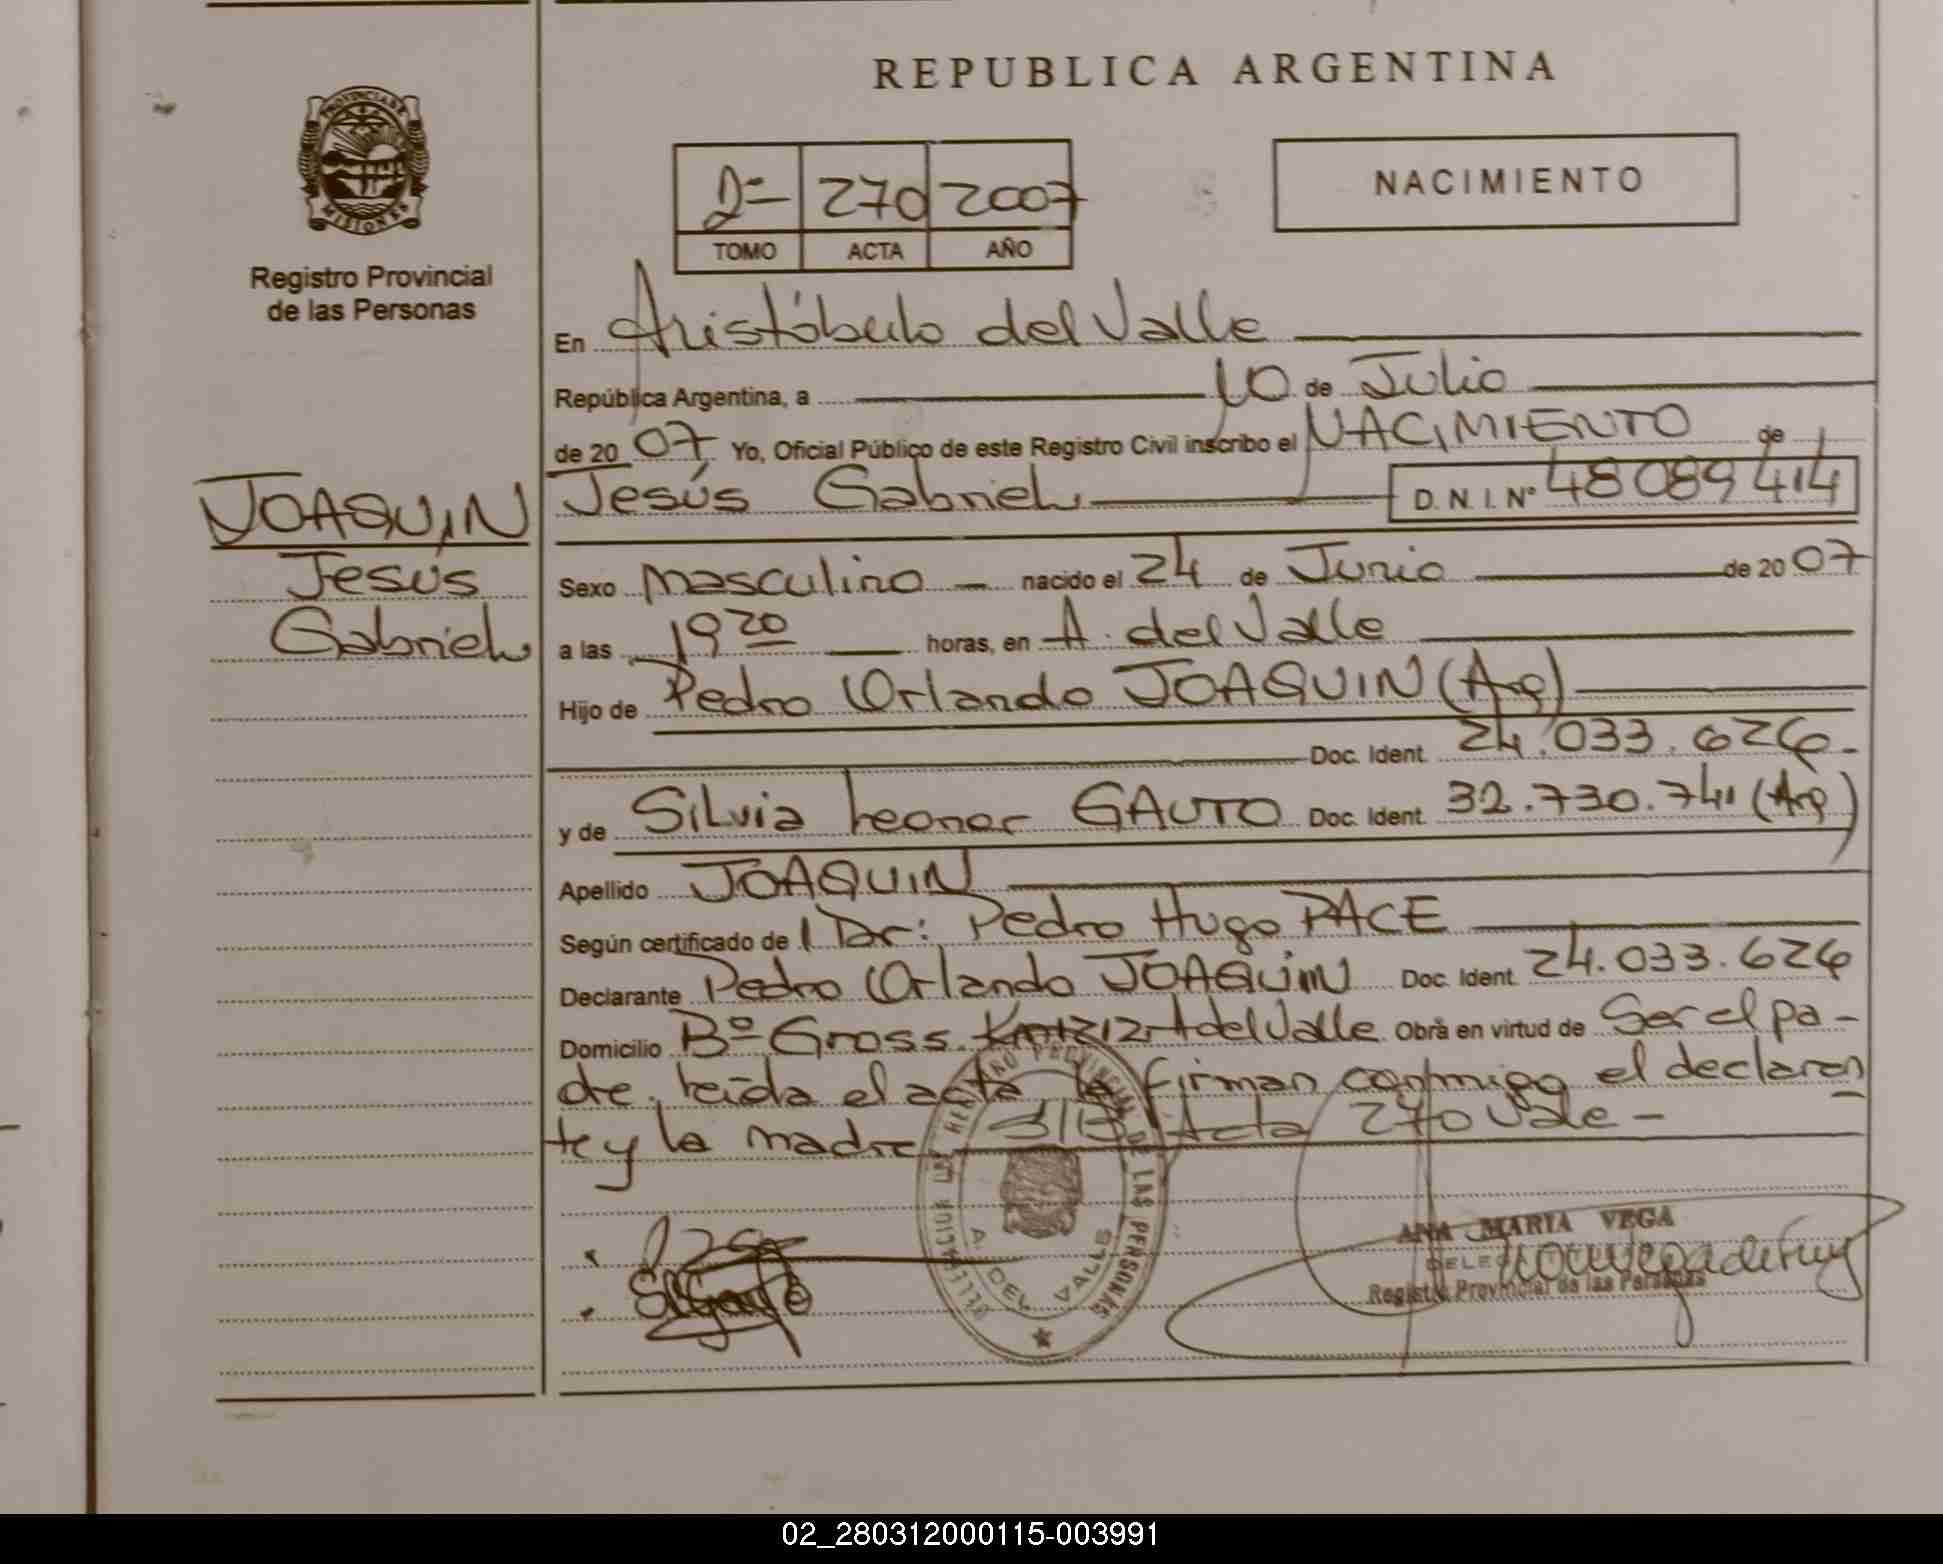 REPUBLICA ARGENTINA
PROVINCIA DE
MISIONES
Registro Provincial
de las Personas
2= 270 2007
TOMO ACTA AÑO
NACIMIENTO
En Aristóbulo del Valle
República Argentina, a 10 de Julio
de 20 07 Yo, Oficial Público de este Registro Civil inscribo el NACIMIENTO de
Jesús Gabriel D. N. I. Nº 48089414
JOAQUIN
Jesús
Gabriel
Sexo masculino nacido el 24 de Junio de 20 07
a las 19 20 horas, en A. del Valle
Hijo de Pedro Orlando JOAQUIN (Arg)
Doc. Ident. 24.033.626.-
y de Silvia Leonor GAUTO Doc. Ident. 32.730.741 (Arg)
Apellido JOAQUIN
Según certificado de l Dr: Pedro Hugo PACE
Declarante Pedro Orlando JOAQUIN Doc. Ident. 24.033.626
Domicilio Bº Gross A del Valle Obra en virtud de Ser el pa-
dre, Leída el acta la firman conmigo el declaran
te y la madre S/B Acta 270 Vale -
PROVINCIAL DE LAS PERSONAS
A. DEL VALLE
ANA MARIA VEGA
Registro Provincial de las Personas
02_280312000115-003991